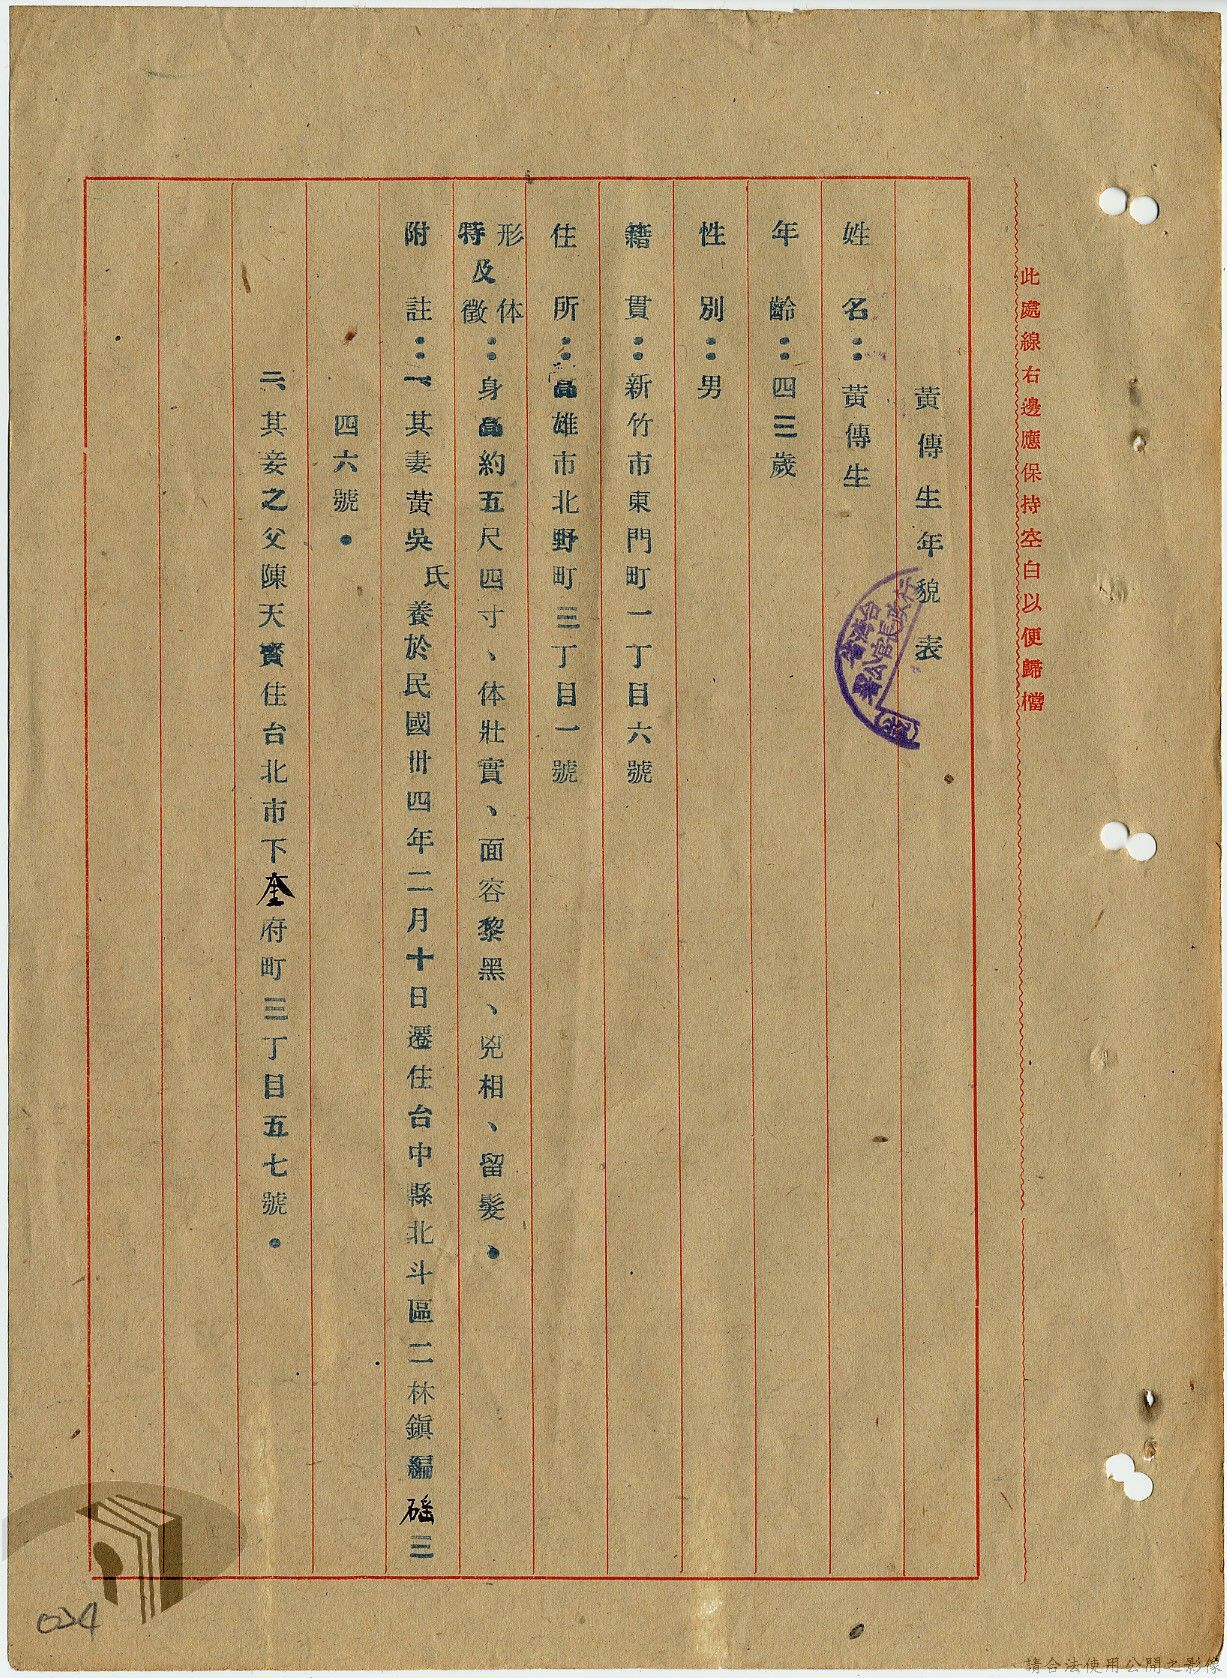 此處線右邊應保持空白以便歸檔
黃傳生年貌表
姓名：黃傳生
年齡：四三歲
性別：男
籍貫：新竹市東門町一丁目六號
住所：高雄市北野町三丁目一號
形体及特徵：身高約五尺四寸、体壯實、面容黎黑、兇相、留髮、
附註：一、其妻黃吳氏養於民國卅四年二月十日遷住台中縣北斗區二林鎮編磘三
四六號。
二、其妾之父陳天賚住台北市下奎府町三丁目五七號。
024
請合法使用公開之影像